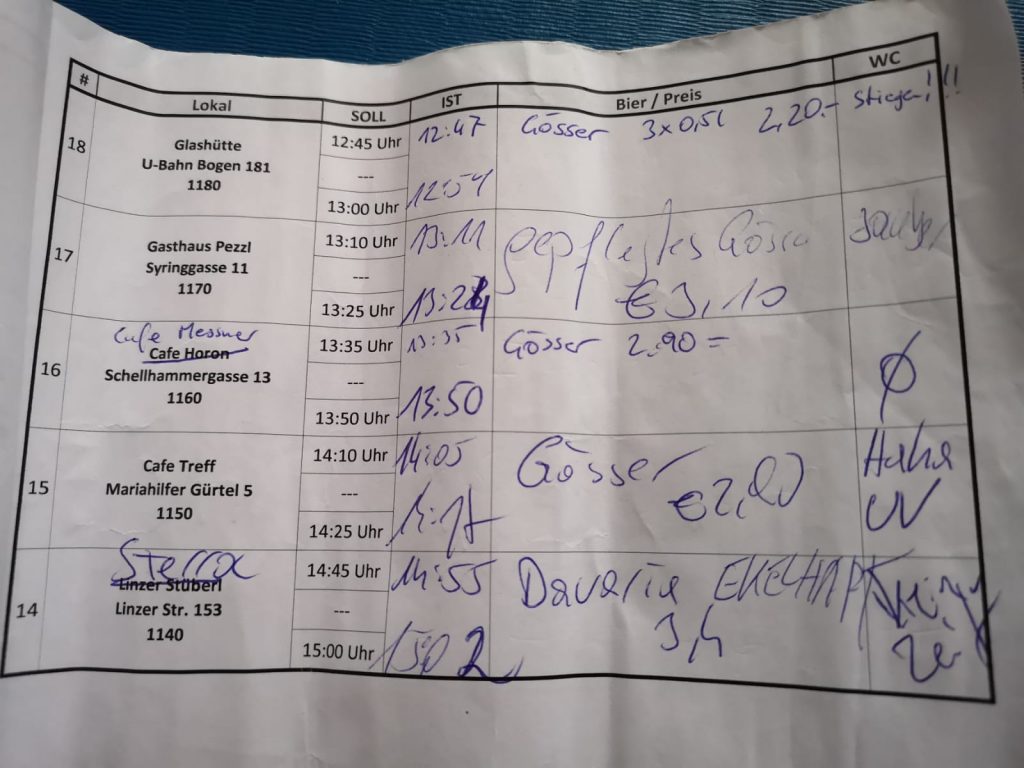 # Lokal SOLL IST Bier / Preis WC
18 Glashütte 12:45 Uhr 12:47 Gösser 3x0,5l 2,20.- Stiegen!!!
U-Bahn Bogen 181 ---
1180 13:00 Uhr 12:54
17 Gasthaus Pezzl 13:10 Uhr 13:11 gepflegtes Gösser
Syringgasse 11 --- € 3,10
1170 13:25 Uhr 13:24
Cafe Messner
16 Cafe Horon 13:35 Uhr 13:35 Gösser 2.90 =
Schellhammergasse 13 --- Ø
1160 13:50 Uhr 13:50
15 Cafe Treff 14:10 Uhr 14:05 Gösser Haha
Mariahilfer Gürtel 5 --- € 2,90 UV
1150 14:25 Uhr 14:17
14 Linzer Stüberl 14:45 Uhr 14:55
Linzer Str. 153 --- 3,4
1140 15:00 Uhr 1502